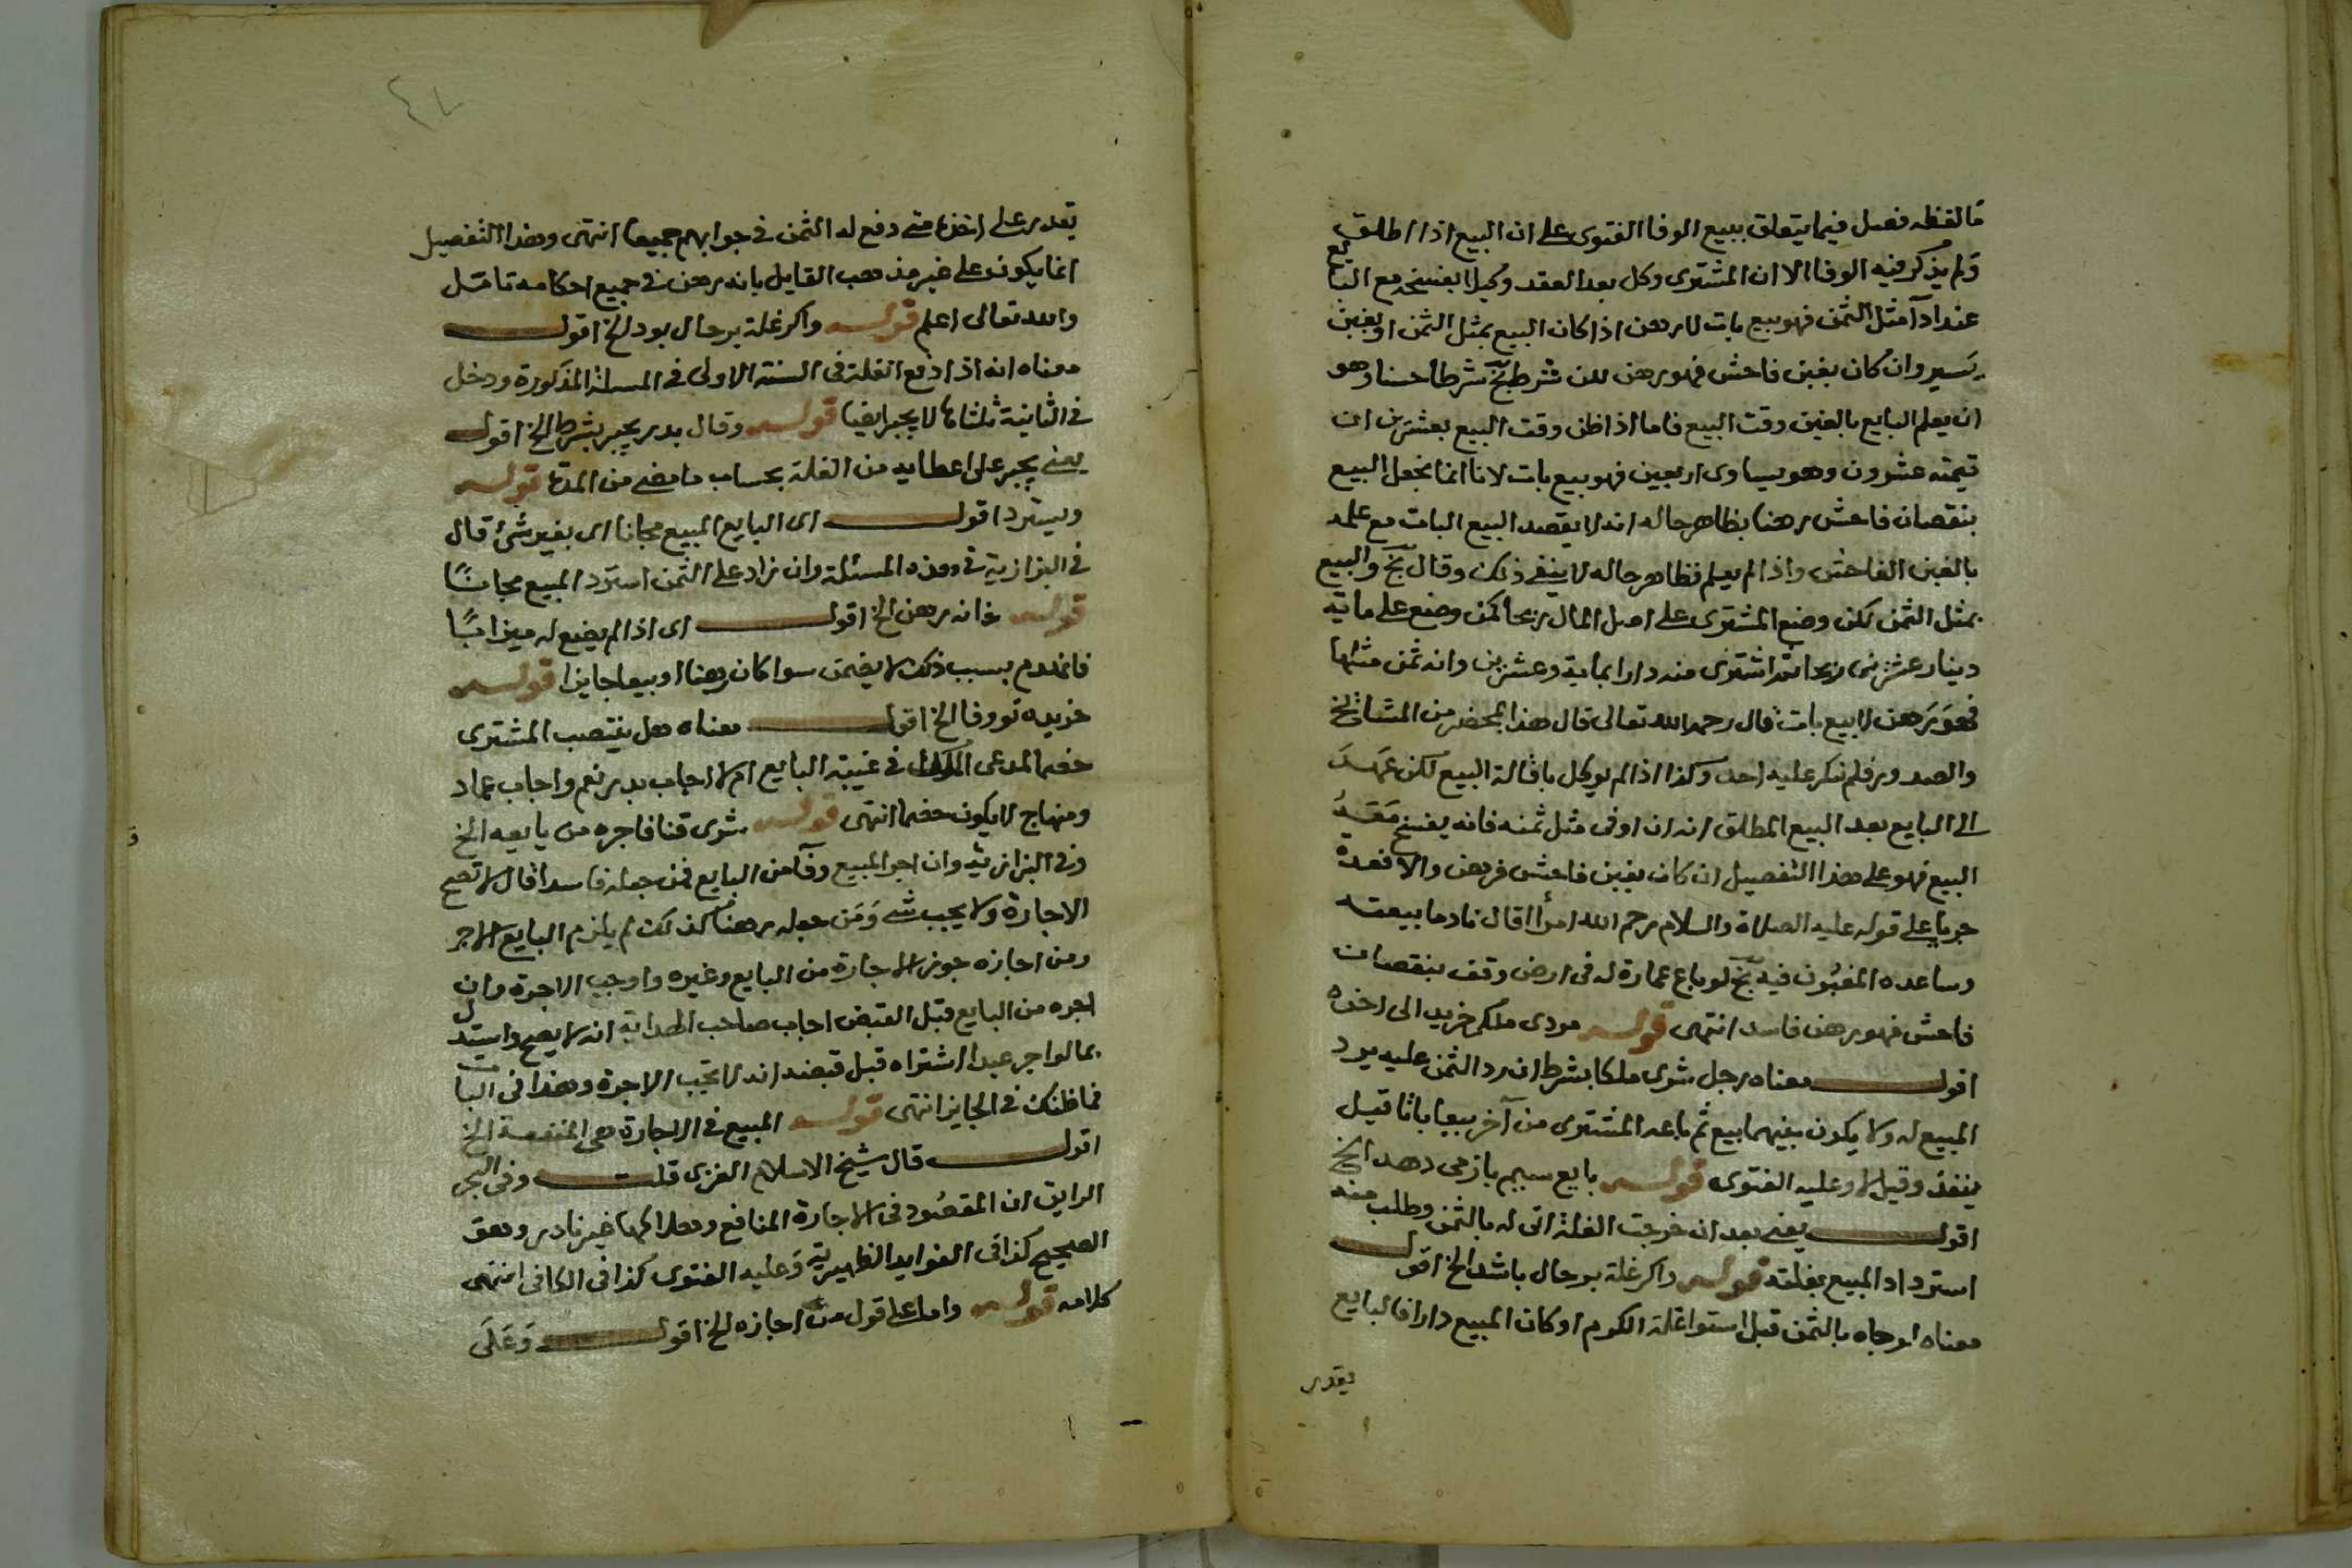 ما لفظه فصل فيما يتعلق ببيع الوفا الفتوى على ان البيع اذا اطلق
ولم يذكر فيه الوفا الا ان المشترى وكل بعد العقد وكيلا يفسخه مع البايع
عند ادآ مثل الثمن فهو بيع بات لا رهن اذا كان البيع بمثل الثمن او بغبن
يسير وان كان بغبن فاحش فهو رهن لكن شرط بخ شرطا حسنا وهو
ان يعلم البايع بالغبن وقت البيع فاما اذا ظن وقت البيع بعشرين ان
قيمته عشرون وهو يساوى اربعين فهو بيع بات لانا انما نجعل البيع
بنقصان فاحش رهنا بظاهر حاله انه لا يقصد البيع البات مع علمه
بالغبن الفاحش واذا لم يعلم فظاهر حاله لا ينفى ذلك وقال بخ والبيع
بمثل الثمن لكن وضع المشترى على اصل المال ربحا كمن وضع على ماية
دينار عشرين ربحا ثم اشترى منه دارا بماية وعشرين وانه ثمن مثلها
فهو رهن لا بيع بات قال رحمه الله تعالى قال هذا بمحضر من المشايخ
والصدور فلم ينكر عليه احد وكذا اذا لم يوكل باقالة البيع لكن عهد
الى البايع بعد البيع المطلق انه ان اوفى مثل ثمنه فانه يفسخ معه
البيع فهو على هذا التفصيل ان كان بغبن فاحش فرهن والا فعدة
جريا على قوله عليه الصلاة والسلام رحم الله امرأ اقال نادما بيعته
وساعده المغبون فيه بخ لو باع عمارة له فى ارض وقف بنقصان
فاحش فهو رهن فاسد انتهى قوله مردى ملكى خريد الى اخره
اقول معناه رجل شرى ملكا بشرط ان رد الثمن عليه يرد
المبيع له ولا يكون بينهما بيع ثم باعه المشترى من آخر بيعا باتا قيل
ينفذ وقيل لا وعليه الفتوى قوله بايع سيم باز مى دهد الخ
اقول يعنى بعد ان خرجت الغلة اتى له بالثمن وطلب منه
استرداد المبيع بغلته قوله واكر غلة بر حال باشد الخ اقول
معناه لو جاه بالثمن قبل استوا غلة الكرم او كان المبيع دارا فالبايع
يقدر
يقدر على اخذها متى دفع له الثمن فى جوابهم جميعا انتهى وهذا التفصيل
انما يكون على غير مذهب القايل بانه رهن فى جميع احكامه تامل
والله تعالى اعلم قوله واكر غلة بر حال بود الخ اقول
معناه انه اذا دفع الغلة فى السنة الاولى فى المسئلة المذكورة ودخل
فى الثانية ثلثاها لا يجبر ايضا قوله وقال بدر يجبر بشرط الخ اقول
يعنى يجبر على اعطايه من الغلة بحساب ما مضى من المدة قوله
ويسترد اقول اى البايع المبيع مجانا اى بغير شئ قال
فى البزازية فى هذه المسئلة وان زاد على الثمن استرد المبيع مجانًا
قوله خانه رهن الخ اقول اى اذا لم يضع له ميزابًا
فانهدم بسبب ذلك لا يضمن سوا كان رهنا او بيعا جايزا قوله
خريده تو وفا الخ اقول معناه هل ينتصب المشترى
خصما لمدعى الملك فى غيبة البايع ام لا اجاب بدر نعم واجاب عماد
ومنهاج لا يكون خصما انتهى قوله شرى قنا فاجره من بايعه الخ
وفى البزازية وان اجر المبيع وفآ من البايع فمن جعله فاسدا قال لا تصح
الاجارة ولا يجب شى ومن جعله رهنا كذلك لم يلزم البايع الاجر
ومن اجازه جوز الاجارة من البايع وغيره واوجب الاجرة وان
اجره من البايع قبل القبض اجاب صاحب الهداية انه لا يصح واستدل
بما لو اجر عبدا اشتراه قبل قبضه انه لا تجب الاجرة وهذا فى البات
فما ظنك فى الجايز انتهى قوله المبيع فى الاجارة هى المنفعة الخ
اقول قال شيخ الاسلام الغزى قلت وفى البحر
الرايق ان المقصود فى الاجارة المنافع وهلاكها غير نادر وهو
الصحيح كذا فى الفوايد الظهيرية وعليه الفتوى كذا فى الكافى انتهى
كلامه قوله واما على قول من اجازه الخ اقول وعلى